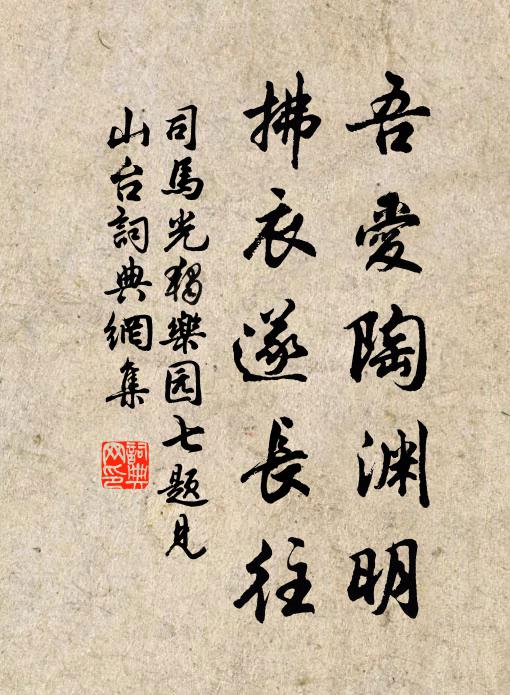 吾愛陶渊明
拂衣遂長往
司馬光獨樂园七題見
山台詞典網集
詞典
网印